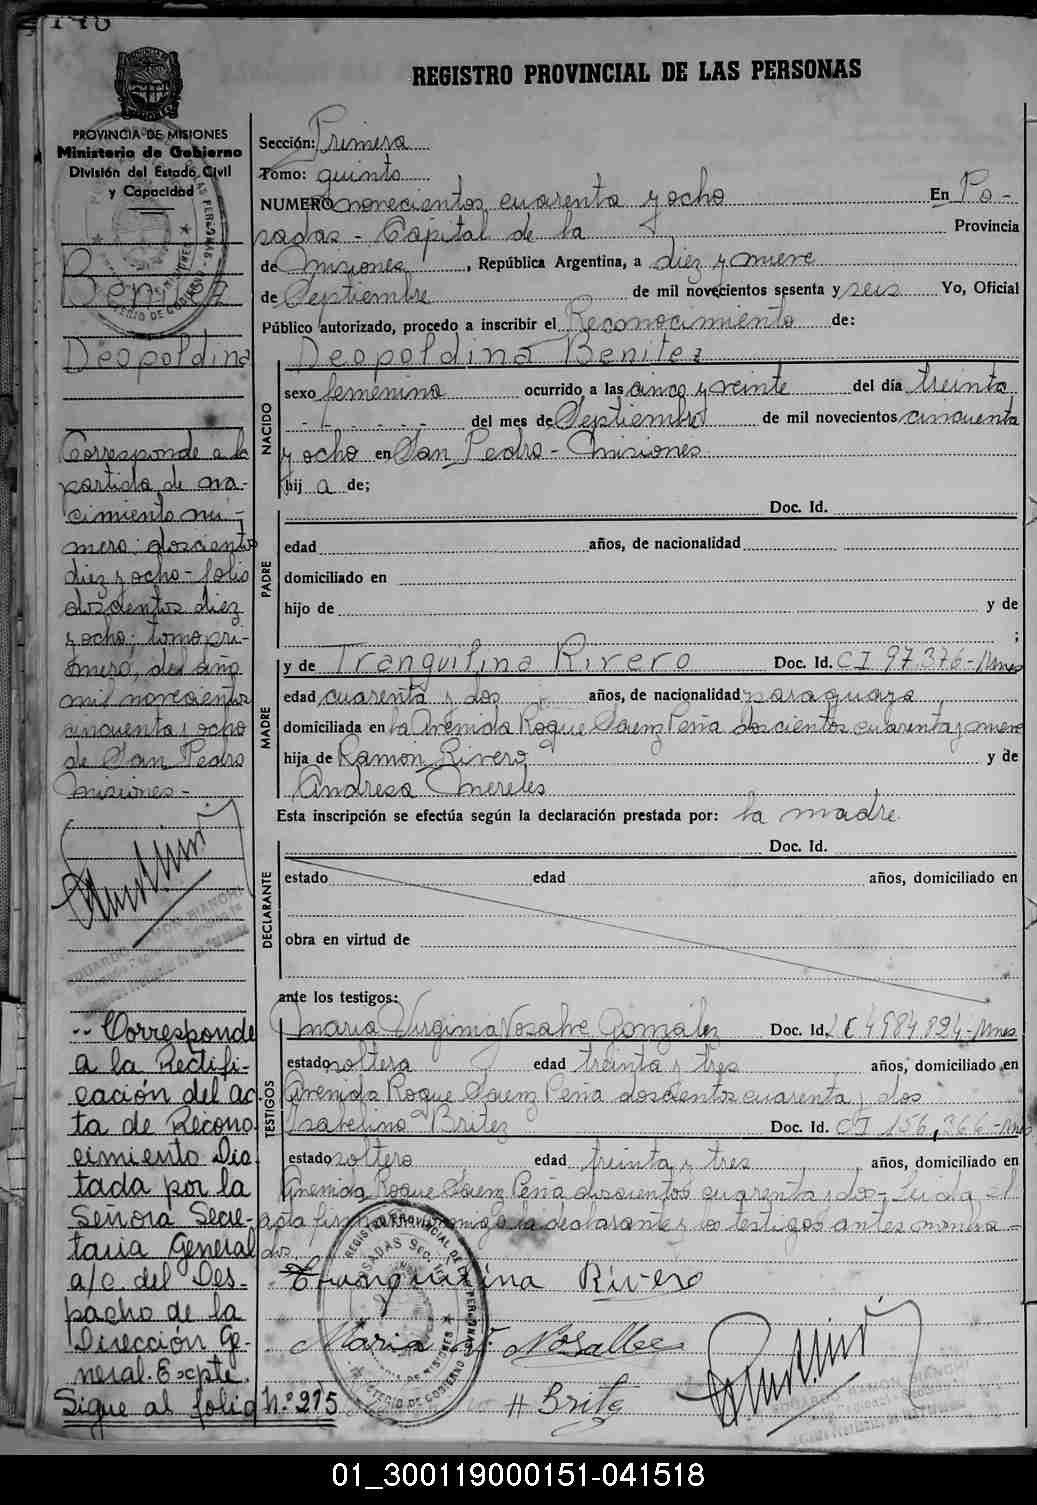 148
REGISTRO PROVINCIAL DE LAS PERSONAS
PROVINCIA DE MISIONES
Ministerio de Gobierno
División del Estado Civil
y Capacidad
Benitez
Deopoldina
Corresponde a la
partida de na-
cimiento nú-
mero: doscientos
diez y ocho - folio
doscientos diez
y ocho; tomo pri-
mero, del año
mil novecientos
cincuenta y ocho
de San Pedro
Misiones -
-- Corresponde
a la Rectifi-
cación del ac-
ta de Recono
cimiento Dic
tada por la
Señora Secre-
taria General
a/c. del Des-
pacho de la
Dirección Ge-
neral. Expte.
Sigue al folio Nº 215
Sección: Primera
Tomo: quinto
NUMERO novecientos cuarenta y ocho En Po-
sadas - Capital de la Provincia
de Misiones, República Argentina, a diez y nueve
de Septiembre de mil novecientos sesenta y seis Yo, Oficial
Público autorizado, procedo a inscribir el Reconocimiento de:
Deopoldina Benitez
NACIDO
sexo femenino ocurrido a las cinco y veinte del día treinta
- - - - - del mes de Septiembre de mil novecientos cincuenta
y ocho en San Pedro - Misiones
hij a de;
PADRE
Doc. Id.
edad años, de nacionalidad
domiciliado en
hijo de y de
;
MADRE
y de Tranquilina Rivero Doc. Id. CI 97.376 - Mnes
edad cuarenta y dos años, de nacionalidad paraguaya
domiciliada en la Avenida Roque Saenz Peña doscientos cuarenta y nueve
hija de Ramón Rivero y de
Andresa Mereles
Esta inscripción se efectúa según la declaración prestada por: la madre.
DECLARANTE
Doc. Id.
estado edad años, domiciliado en
obra en virtud de
ante los testigos:
TESTIGOS
Maria Virginia Nosalve González Doc. Id. LC 4984.824 - Mnes
estado soltera edad treinta y tres años, domiciliado en
Avenida Roque Saenz Peña doscientos cuarenta y dos
Isabelino Britez Doc. Id. CI 156,366 - Mnes
estado soltero edad treinta y tres años, domiciliado en
Avenida Roque Saenz Peña doscientos cuarenta y dos - Leida el
acta firman conmigo la declarante y los testigos antes nombra-
dos
Tranquilina Rivero
Maria V. Nosalbe
Brite
01_300119000151-041518